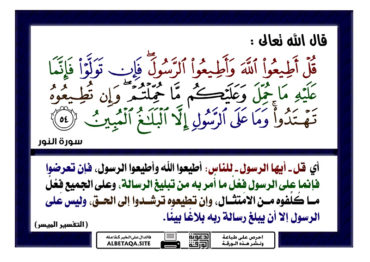 قال الله تعالى :
قُلْ أَطِيعُوا۟ ٱللَّهَ وَأَطِيعُوا۟ ٱلرَّسُولَ ۖ فَإِن تَوَلَّوْا۟ فَإِنَّمَا
عَلَيْهِ مَا حُمِّلَ وَعَلَيْكُم مَّا حُمِّلْتُمْ ۖ وَإِن تُطِيعُوهُ
تَهْتَدُوا۟ ۚ وَمَا عَلَى ٱلرَّسُولِ إِلَّا ٱلْبَلَٰغُ ٱلْمُبِينُ ٥٤
سورة النور
أي قل ـ أيها الرسول ـ للناس: أطيعوا الله وأطيعوا الرسول، فإن تعرضوا
فإنما على الرسول فعل ما أمر به من تبليغ الرسالة، وعلى الجميع فعل
ما كلفوه مـن الامتثـال، وإن تطيعوه ترشـدوا إلى الحـق، وليس على
الرسول إلا أن يبلغ رسالة ربه بلاغا بينا.
(التفسير الميسر)
احرص على طباعة
ونشر هذه الورقة
ALBETAQA.SITE